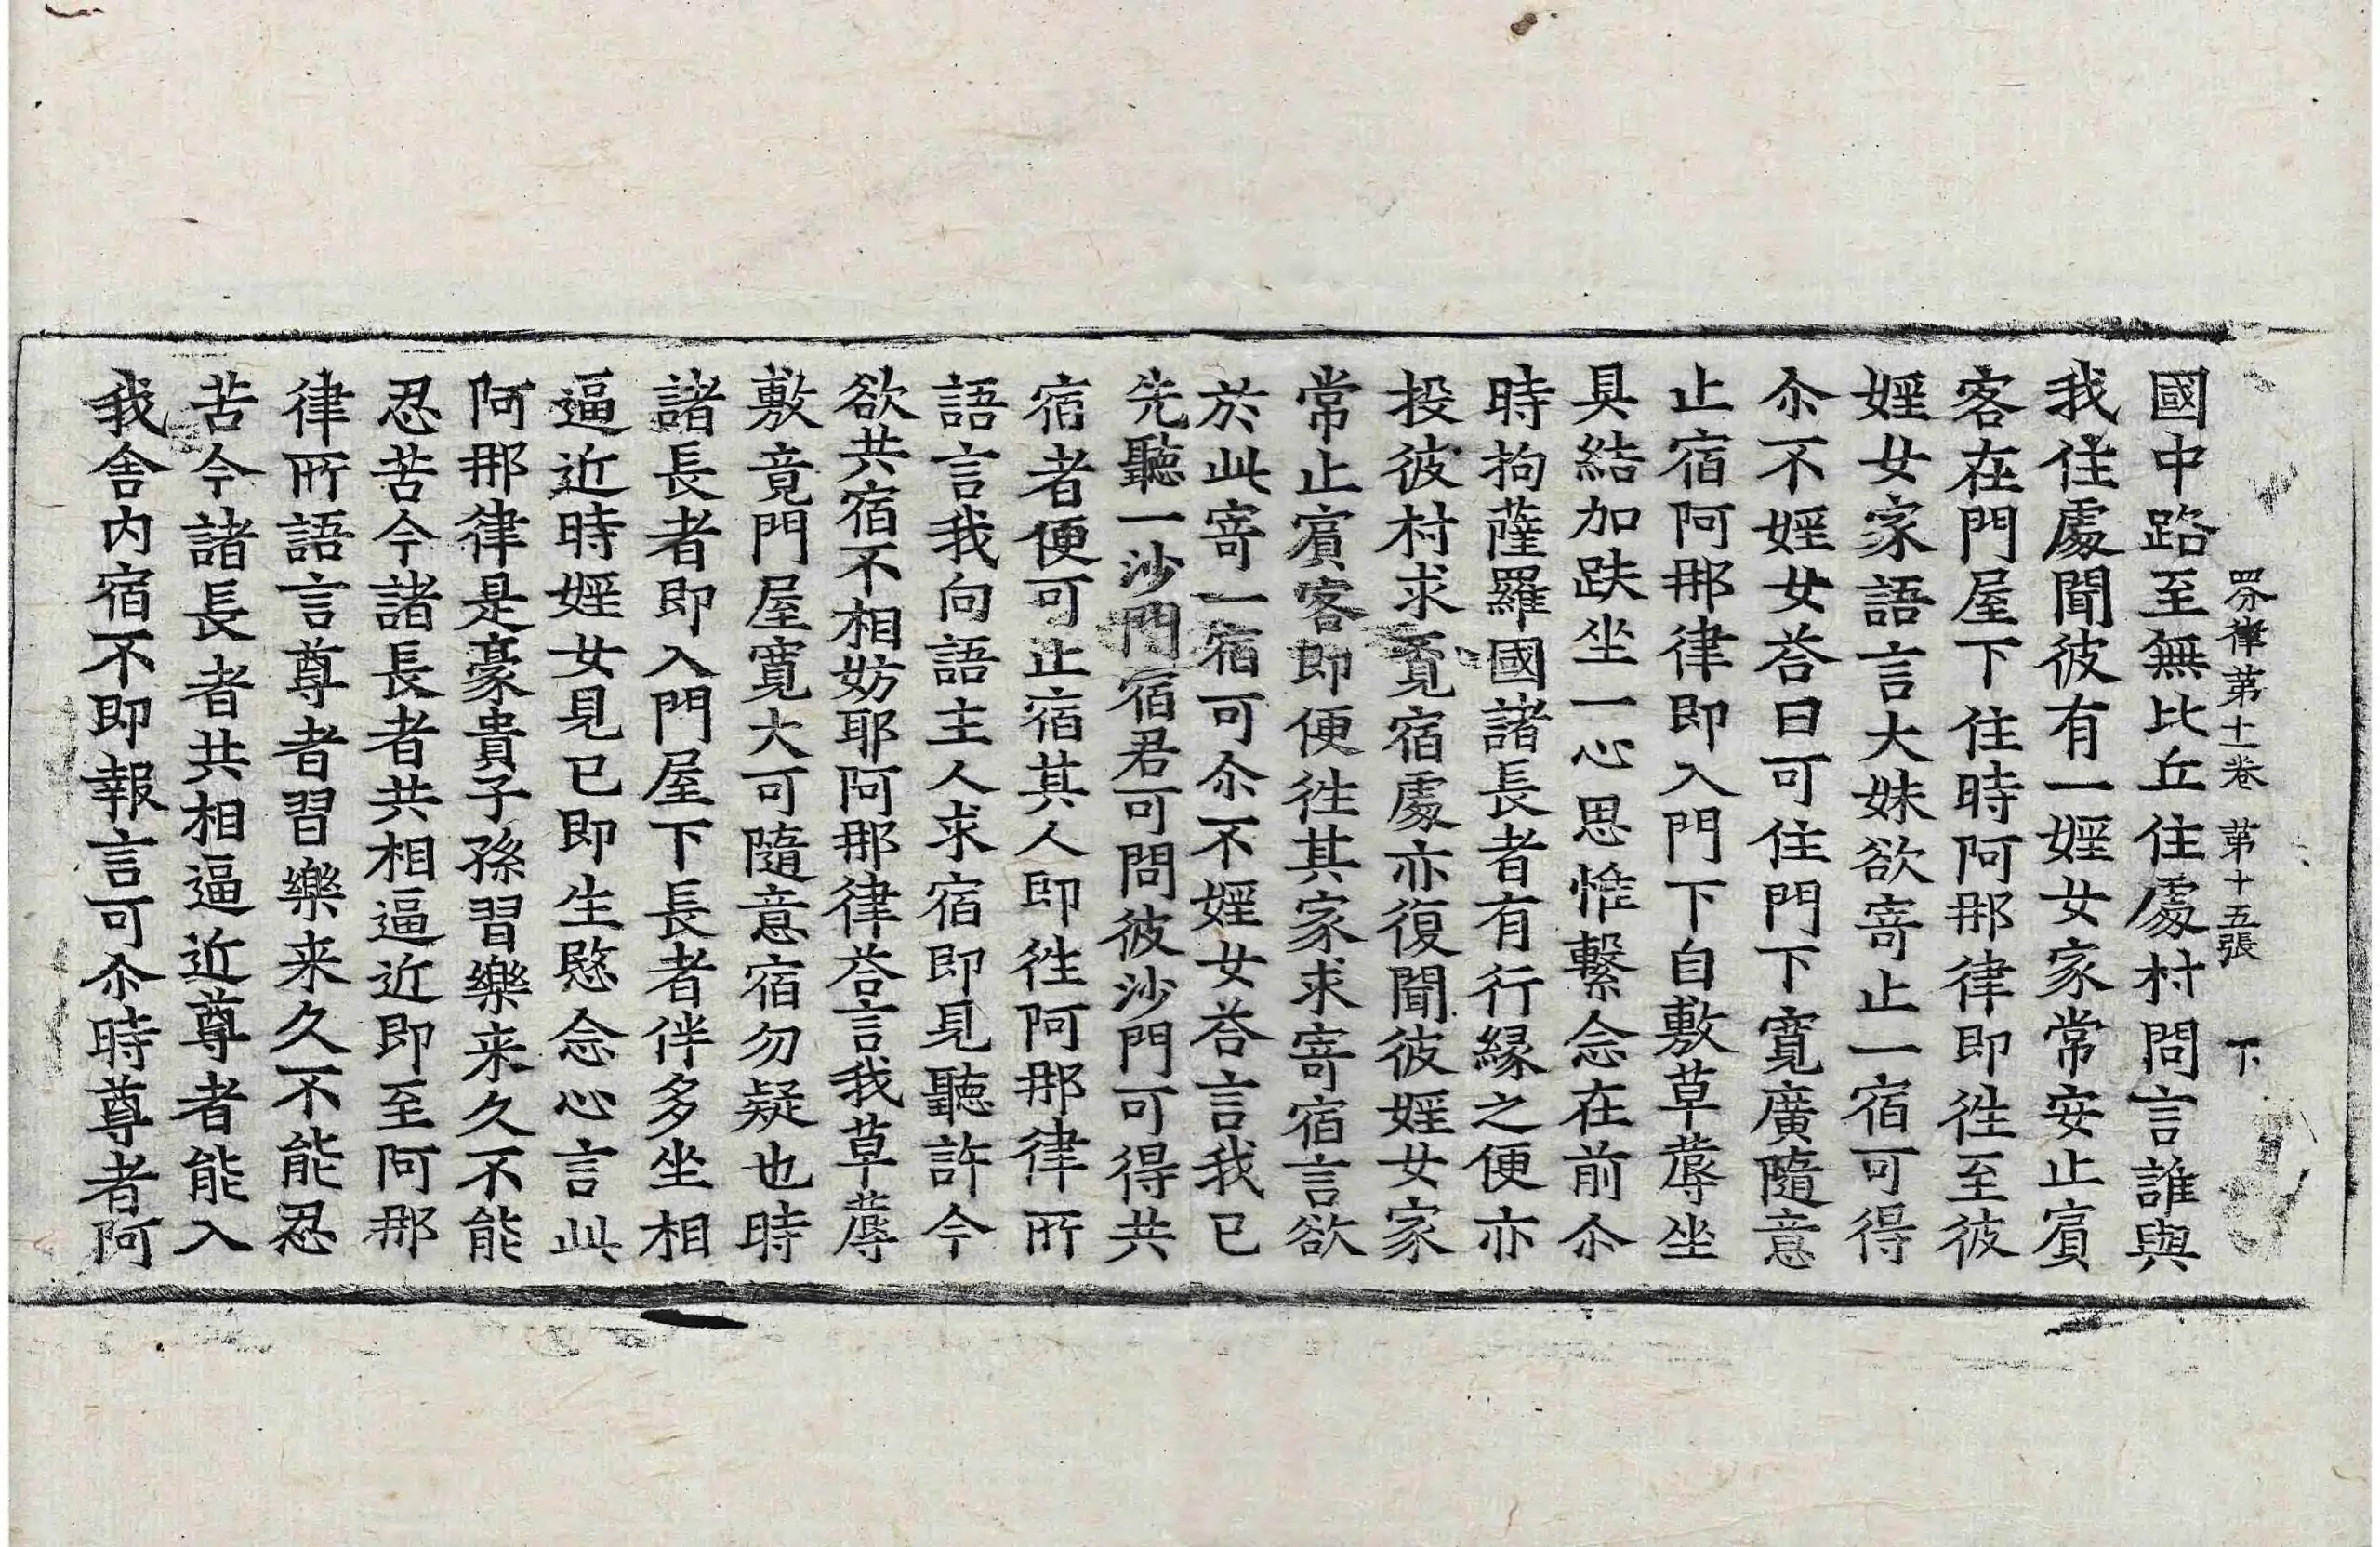 四分律第十一卷 第十五張 下
國中路至無比丘住處村問言誰與
我住處聞彼有一婬女家常安止賔
客在門屋下住時阿那律即徃至彼
婬女家語言大妹欲寄止一宿可得
尒不婬女荅曰可住門下寬廣隨意
止宿阿那律即入門下自敷草蓐坐
具結加趺坐一心思惟繫念在前尒
時拘薩羅國諸長者有行緣之便亦
投彼村求覓宿處亦復聞彼婬女家
常止賔客即便徃其家求寄宿言欲
於此寄一宿可尒不婬女荅言我已
先聽一沙門宿君可問彼沙門可得共
宿者便可止宿其人即徃阿那律所
語言我向語主人求宿即見聽許今
欲共宿不相妨耶阿那律荅言我草蓐
敷竟門屋寬大可隨意宿勿疑也時
諸長者即入門屋下長者伴多坐相
逼近時婬女見已即生慜念心言此
阿那律是豪貴子孫習樂来久不能
忍苦今諸長者共相逼近即至阿那
律所語言尊者習樂来久不能忍
苦今諸長者共相逼近尊者能入
我舍内宿不即報言可尒時尊者阿